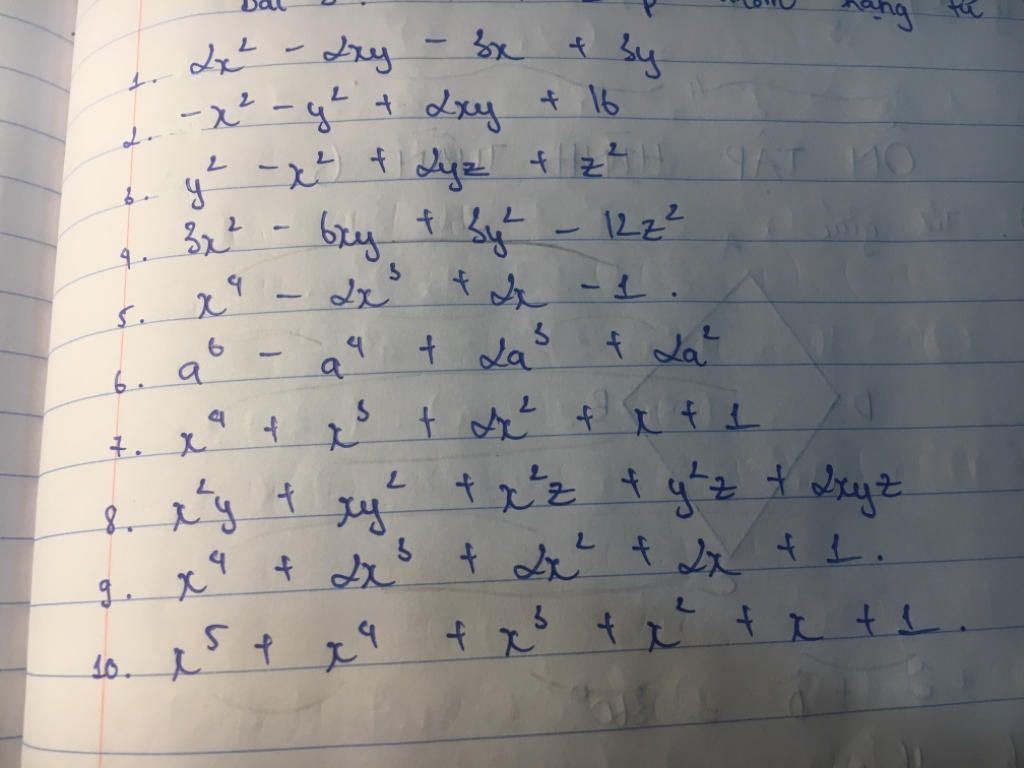 nhóm hạng tử
1. 2x² - 2xy - 3x + 3y
2. -x² - y² + 2xy + 16
3. y² - x² + 2yz + z²
4. 3x² - 6xy + 3y² - 12z²
5. x⁴ - 2x³ + 2x - 1.
6. a⁶ - a⁴ + 2a³ + 2a²
7. x⁴ + x³ + 2x² + x + 1
8. x²y + xy² + x²z + y²z + 2xyz
9. x⁴ + 2x³ + 2x² + 2x + 1.
10. x⁵ + x⁴ + x³ + x² + x + 1.